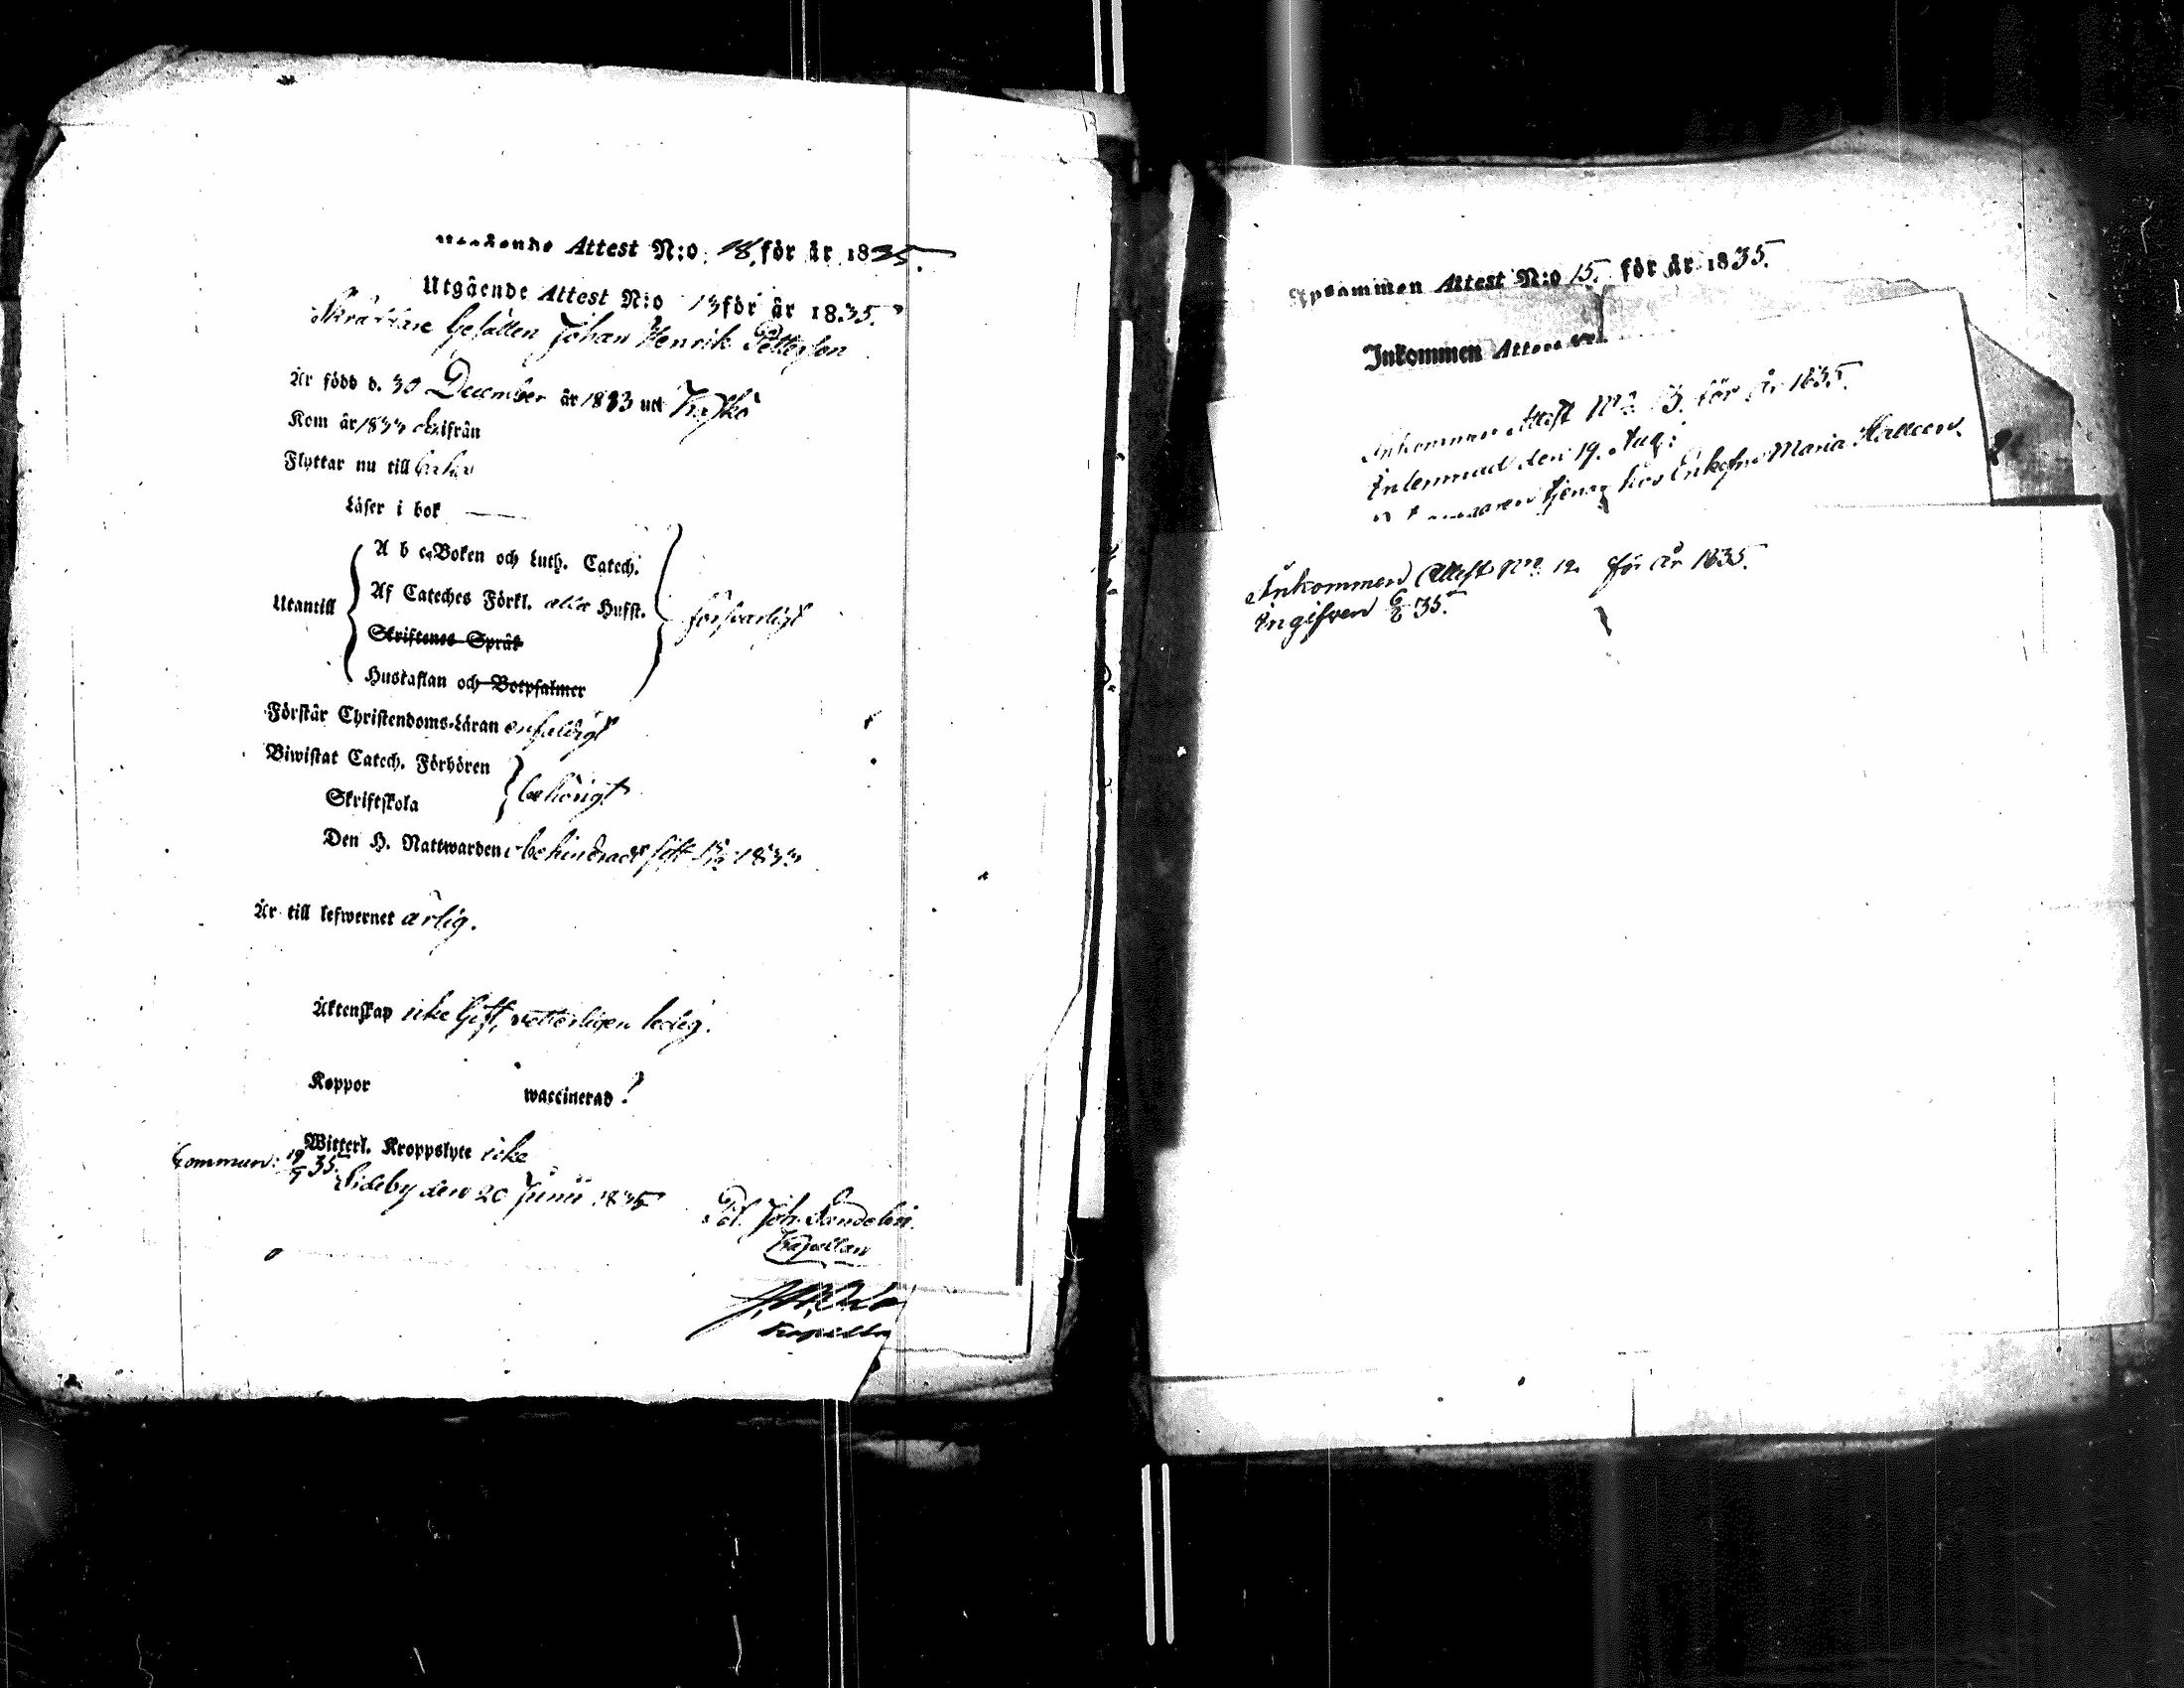 Attest N:o 18, för år 1835.
Utgående Attest N:o 13 för år 1835.
Skräddare Gesällen Johan Henrik Petterson
Är född d. 30 December år 1813 uti Kaskö
Kom år 1833 ifrån
Flyttar nu till
Läser i bok —
A b c-Boken och Luth. Catech.
Af Cateches Förkl. eller Hufst.
Utantill försvarligt
Skriftenes Språk
Hustaflan och Botpsalmer
Förstår Christendoms-Läran enfaldigt
Biwistat Catech. Förhören
behörigt
Skriftskola
Den H. Nattwarden obehindradt sist 1833
Är till lefwernet ärlig.
Äktenskap icke Gift, vetterligen ledig.
Koppor waccinerad?
Witterl. Kroppslyte icke
Commun: 19/9 35.
Sideby den 20 Junii 1835
Joh.
Kapellan
Kapella
Inkommen Attest N:o 15. för år 1835.
Inkommen Attest
Inkommen Attest No 13. för år 1835.
Inlemnad den 19. Aug:
tjenar hos Enkefru Maria
Inkommen Attest No 12. för år 1835.
Ingifven 6/8 35.